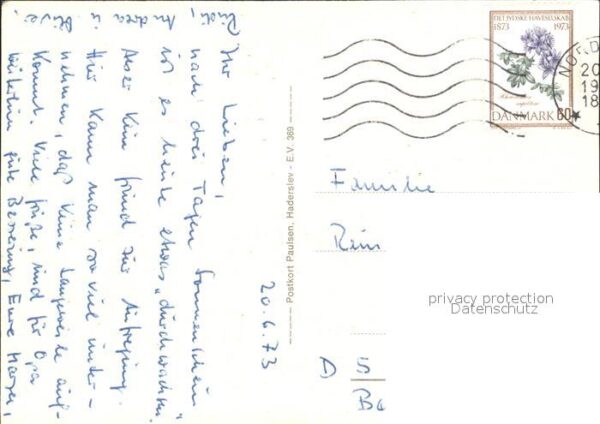 20.6.73
Ihr Lieben,
nach drei Tagen Sonnenschein
ist es heute etwas „durchwachsen“.
Aber kein Grund zur Aufregung.
Hier kann man so viel unter-
nehmen, daß keine Langeweile auf-
kommt. Viele Grüße, und für Opa
weiterhin gute Besserung, Eure
Rudi,
Andrea u.
Postkort Paulsen, Haderslev - E.V. 369
DET JYDSKE HAVESELSKAB
1873 1973
DANMARK 60
NORD
20
19
18
Familie
D
privacy protection
Datenschutz